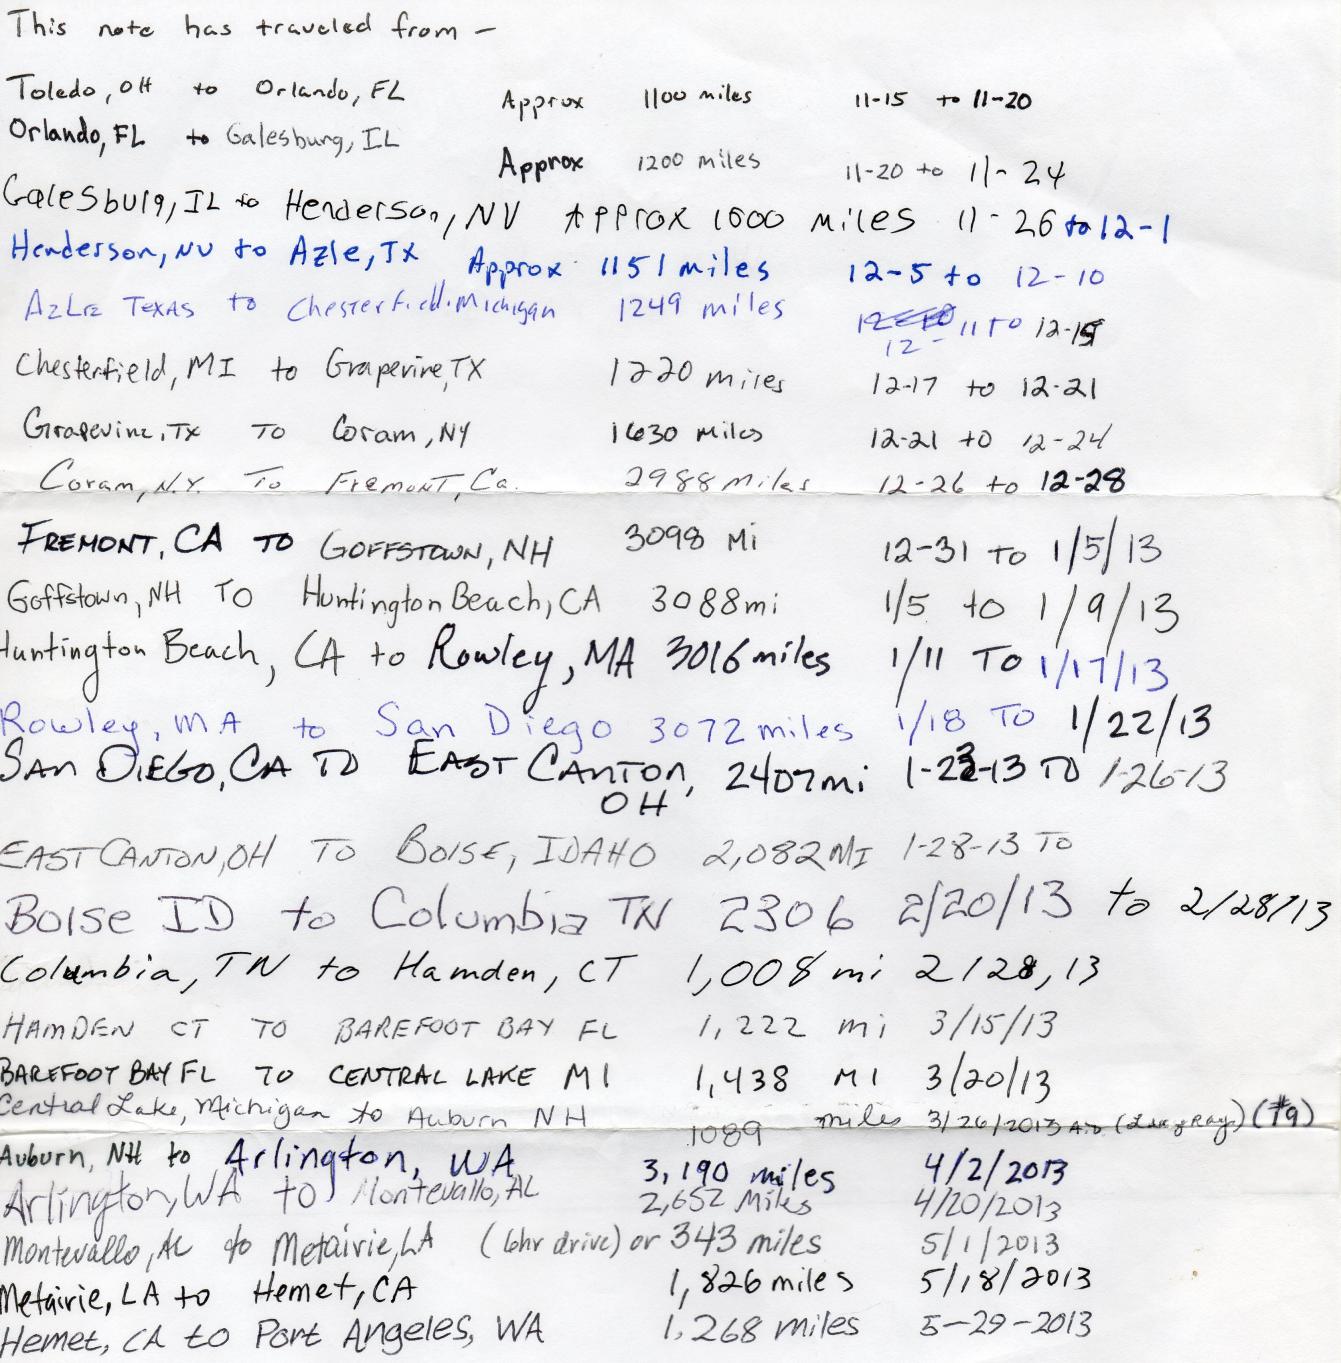 This note has traveled from -
Toledo, OH to Orlando, FL Approx 1100 miles 11-15 to 11-20
Orlando, FL to Galesburg, IL Approx 1200 miles 11-20 to 11-24
Galesburg, IL to Henderson, NV Approx 1600 miles 11-26 to 12-1
Henderson, NV to Azle, TX Approx 1151 miles 12-5 to 12-10
Azle Texas to Chesterfield. Michigan 1249 miles 12-11 to 12-15
Chesterfield, MI to Grapevine, TX 1220 miles 12-17 to 12-21
Grapevine, TX TO Coram, NY 1630 Miles 12-21 to 12-24
Coram, N.Y. To Fremont, Ca. 2988 miles 12-26 to 12-28
FREMONT, CA TO GOFFSTOWN, NH 3098 Mi 12-31 TO 1/5/13
Goffstown, NH TO Huntington Beach, CA 3088mi 1/5 to 1/9/13
Huntington Beach, CA to Rowley, MA 3016 miles 1/11 TO 1/17/13
Rowley, MA to San Diego 3072 miles 1/18 TO 1/22/13
SAN DIEGO, CA TO EAST CANTON, OH 2407mi 1-23-13 TO 1-26-13
EAST CANTON, OH TO BOISE, IDAHO 2,082 MI 1-28-13 TO
Boise ID to Columbia TN 2306 2/20/13 to 2/28/13
Columbia, TN to Hamden, CT 1,008 mi 2/28, 13
HAMDEN CT TO BAREFOOT BAY FL 1,222 mi 3/15/13
BAREFOOT BAY FL TO CENTRAL LAKE MI 1,438 MI 3/20/13
Central Lake, Michigan to Auburn NH 1089 miles 3/26/2013 (#9)
Auburn, NH to Arlington, WA 3,190 miles 4/2/2013
Arlington, WA to Montevallo, AL 2,652 Miles 4/20/2013
Montevallo, AL to Metairie, LA (6hr drive) or 343 miles 5/1/2013
Metairie, LA to Hemet, CA 1,826 miles 5/18/2013
Hemet, CA to Port Angeles, WA 1,268 miles 5-29-2013